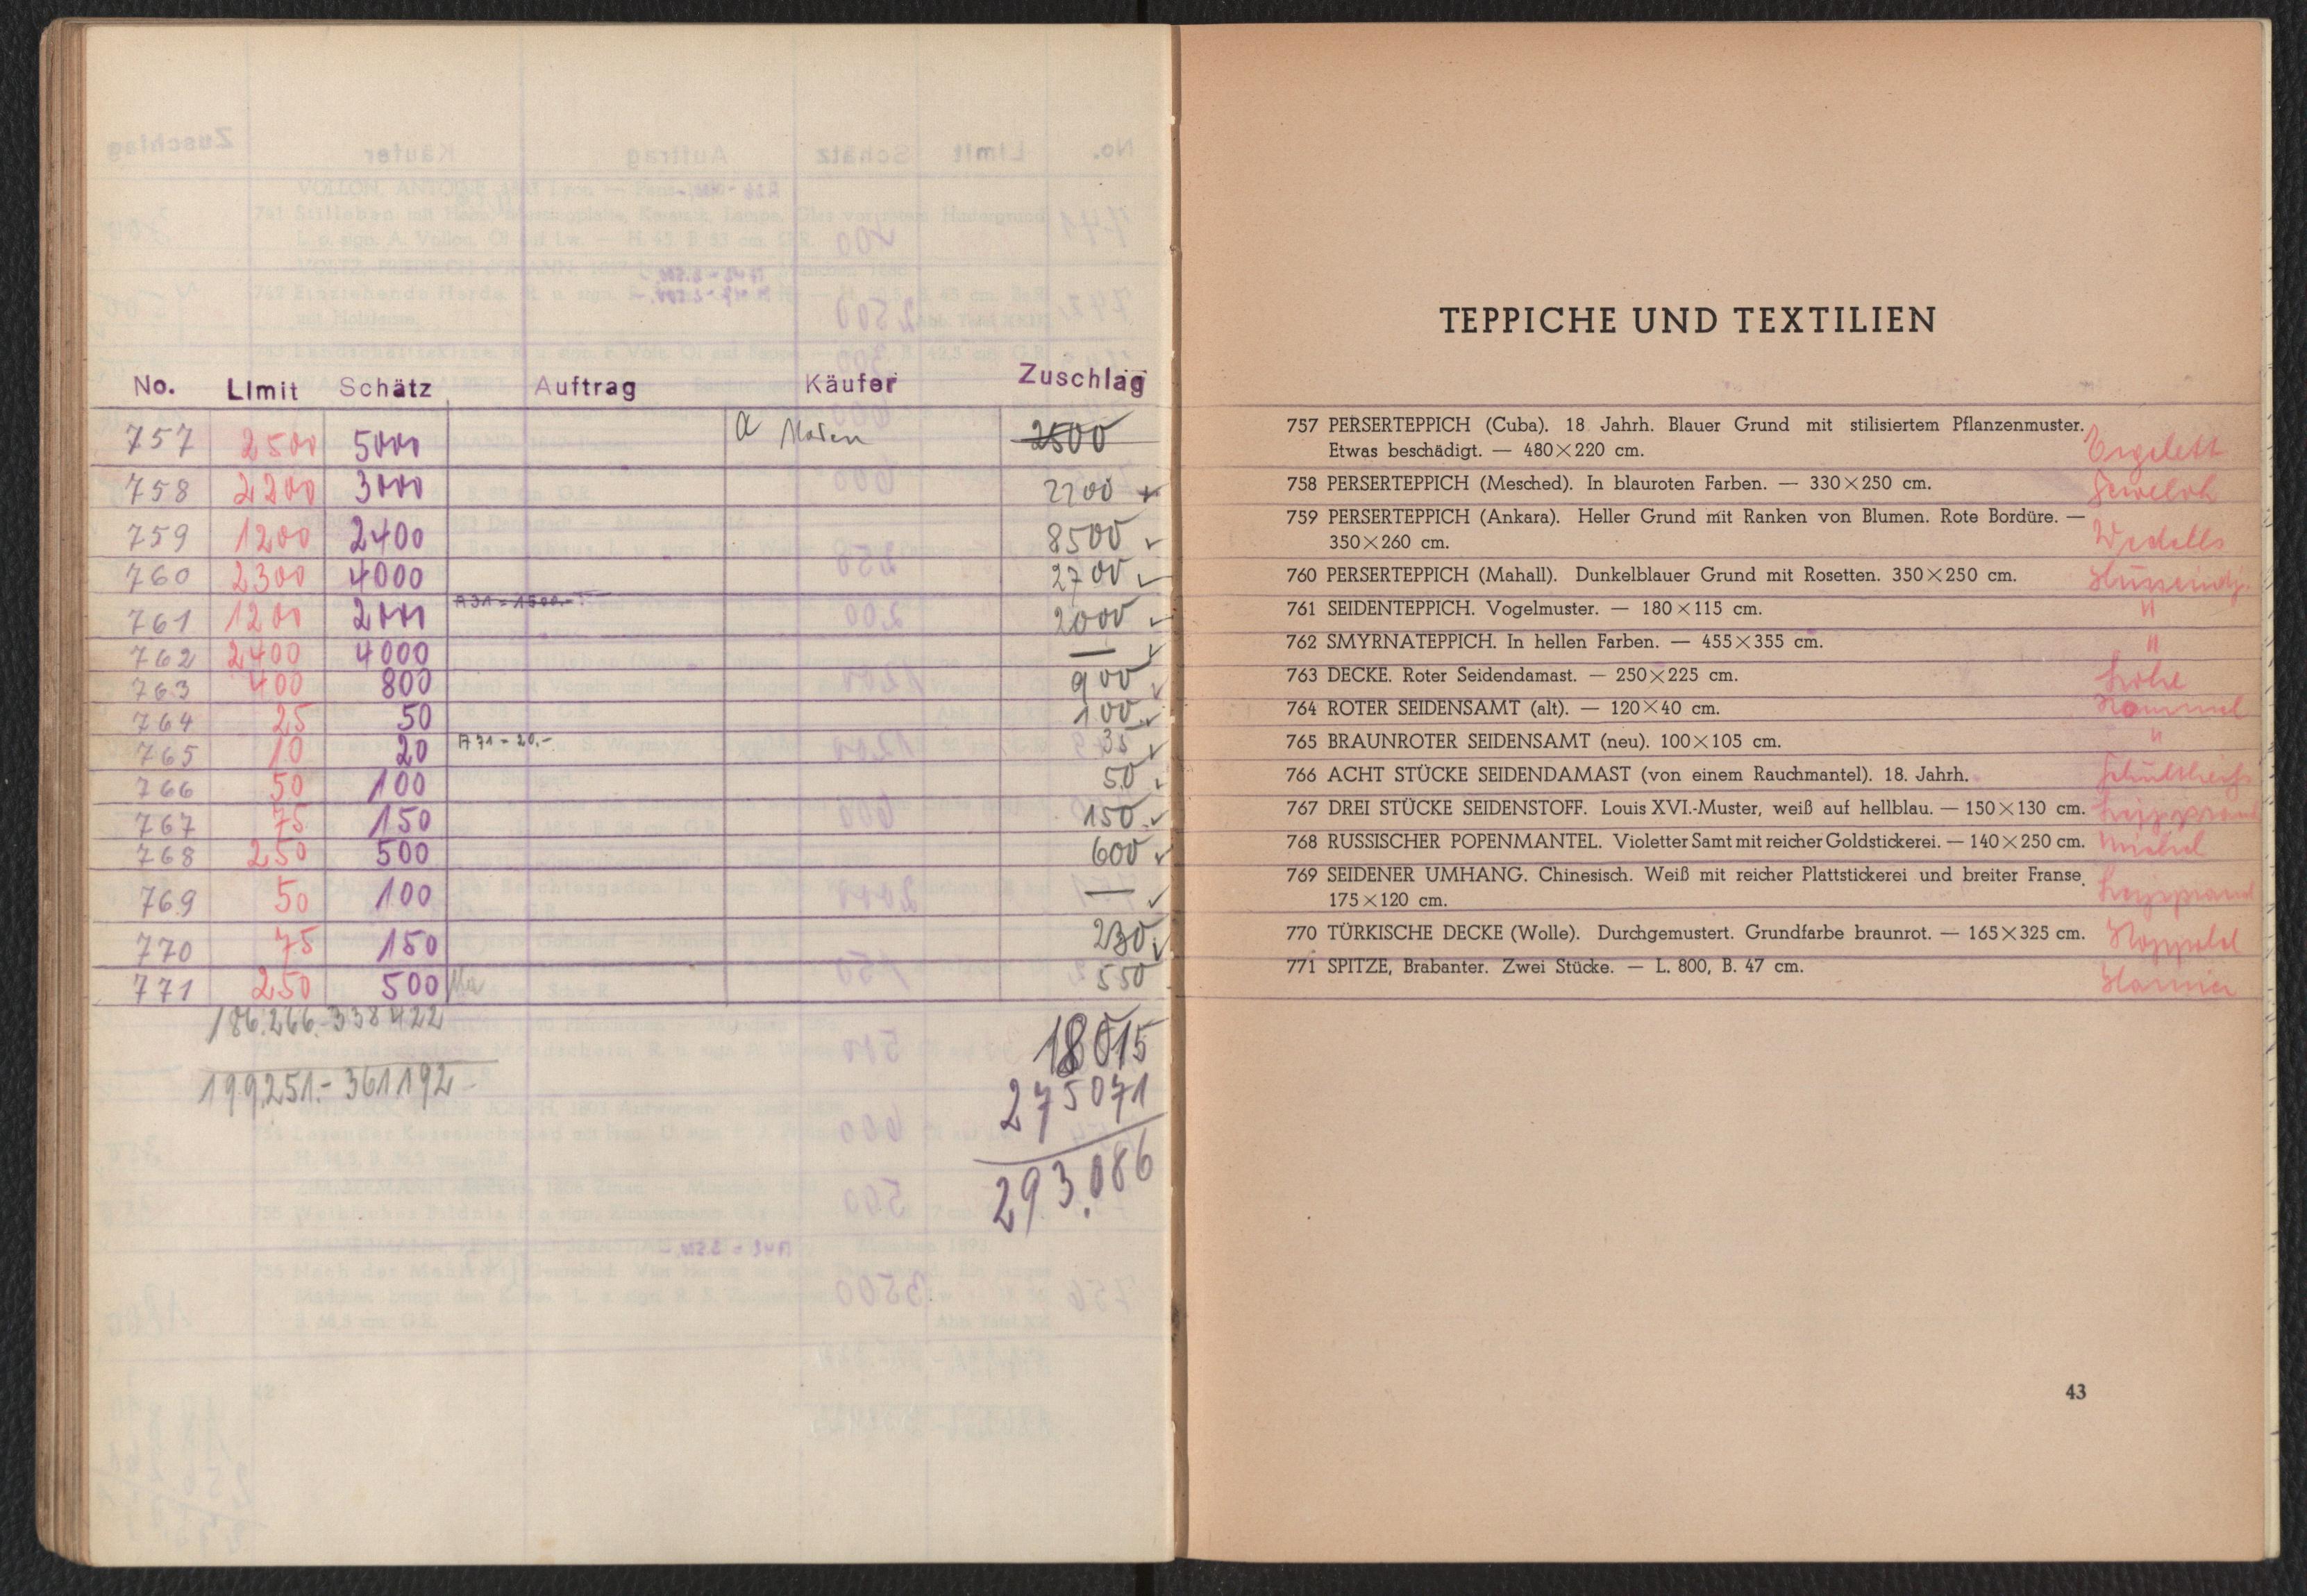 No. Limit Schätz Auftrag Käufer Zuschlag
757 2500 5000 a 2500
758 2200 3000 2200 +
759 1200 2400 8500 ✓
760 2300 4000 2700 ✓
761 1200 2000 A31 = 1500.- 2000 ✓
762 2400 4000 — ✓
763 400 800 900 ✓
764 25 50 100 ✓
765 10 20 A 71 = 20.- 35 ✓
766 50 100 50 ✓
767 75 150 150 ✓
768 250 500 600 ✓
769 50 100 — ✓
770 75 150 230 ✓
771 250 500 550
186.266.- 338422
199251.- 361192.-
18015
275071
293.086
TEPPICHE UND TEXTILIEN
757 PERSERTEPPICH (Cuba). 18 Jahrh. Blauer Grund mit stilisiertem Pflanzenmuster.
Etwas beschädigt. — 480×220 cm.
758 PERSERTEPPICH (Mesched). In blauroten Farben. — 330×250 cm.
759 PERSERTEPPICH (Ankara). Heller Grund mit Ranken von Blumen. Rote Bordüre. —
350×260 cm. Wedells
760 PERSERTEPPICH (Mahall). Dunkelblauer Grund mit Rosetten. 350×250 cm.
761 SEIDENTEPPICH. Vogelmuster. — 180×115 cm. "
762 SMYRNATEPPICH. In hellen Farben. — 455×355 cm. "
763 DECKE. Roter Seidendamast. — 250×225 cm.
764 ROTER SEIDENSAMT (alt). — 120×40 cm. Hommel
765 BRAUNROTER SEIDENSAMT (neu). 100×105 cm. "
766 ACHT STÜCKE SEIDENDAMAST (von einem Rauchmantel). 18. Jahrh. Schultheiß
767 DREI STÜCKE SEIDENSTOFF. Louis XVI.-Muster, weiß auf hellblau. — 150×130 cm.
768 RUSSISCHER POPENMANTEL. Violetter Samt mit reicher Goldstickerei. — 140×250 cm. Michel
769 SEIDENER UMHANG. Chinesisch. Weiß mit reicher Plattstickerei und breiter Franse.
175×120 cm.
770 TÜRKISCHE DECKE (Wolle). Durchgemustert. Grundfarbe braunrot. — 165×325 cm.
771 SPITZE, Brabanter. Zwei Stücke. — L. 800, B. 47 cm.
43